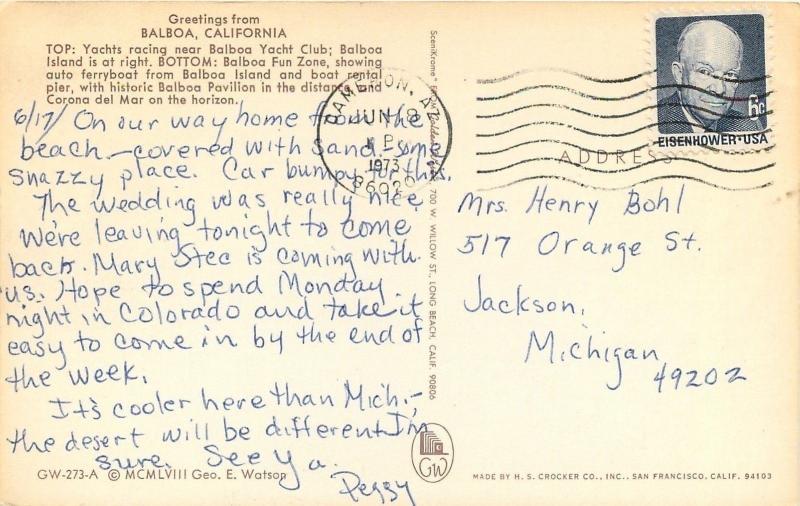 Greetings from
BALBOA, CALIFORNIA
TOP: Yachts racing near Balboa Yacht Club; Balboa
Island is at right. BOTTOM: Balboa Fun Zone, showing
auto ferryboat from Balboa Island and boat rental
pier, with historic Balboa Pavilion in the distance and
Corona del Mar on the horizon.
6/17/ On our way home from the
beach - covered with sand - some
snazzy place. Car bumpy for this.
The wedding was really nice.
We're leaving tonight to come
back. Mary Stec is coming with
us. Hope to spend Monday
night in Colorado and take it
easy to come in by the end of
the week.
It's cooler here than Mich. -
the desert will be different I'm
sure. See Ya.
Peggy
GW-273-A © MCMLVIII Geo. E. Watson
SceniKrome
700 W. WILLOW ST., LONG BEACH, CALIF. 90806
GW
CAMERON, A
JUN 18
P
1973
86020
6c
EISENHOWER·USA
ADDRESS
Mrs. Henry Bohl
517 Orange St.
Jackson,
Michigan
49202
MADE BY H. S. CROCKER CO., INC., SAN FRANCISCO, CALIF. 94103